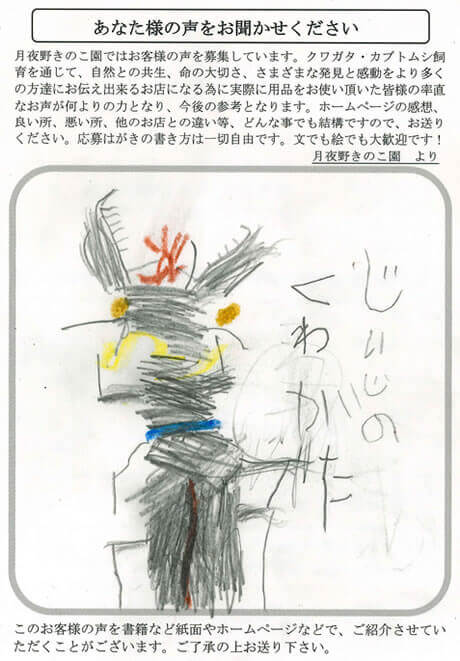 あなた様の声をお聞かせください
月夜野きのこ園ではお客様の声を募集しています。クワガタ・カブトムシ飼
育を通じて、自然との共生、命の大切さ、さまざまな発見と感動をより多く
の方達にお伝え出来るお店になる為に実際に用品をお使い頂いた皆様の率直
なお声が何よりの力となり、今後の参考となります。ホームページの感想、
良い所、悪い所、他のお店との違い等、どんな事でも結構ですので、お送り
ください。応募はがきの書き方は一切自由です。文でも絵でも大歓迎です！
月夜野きのこ園　より
じぃじの
くわがた
このお客様の声を書籍など紙面やホームページなどで、ご紹介させてい
ただくことがございます。ご了承の上お送り下さい。